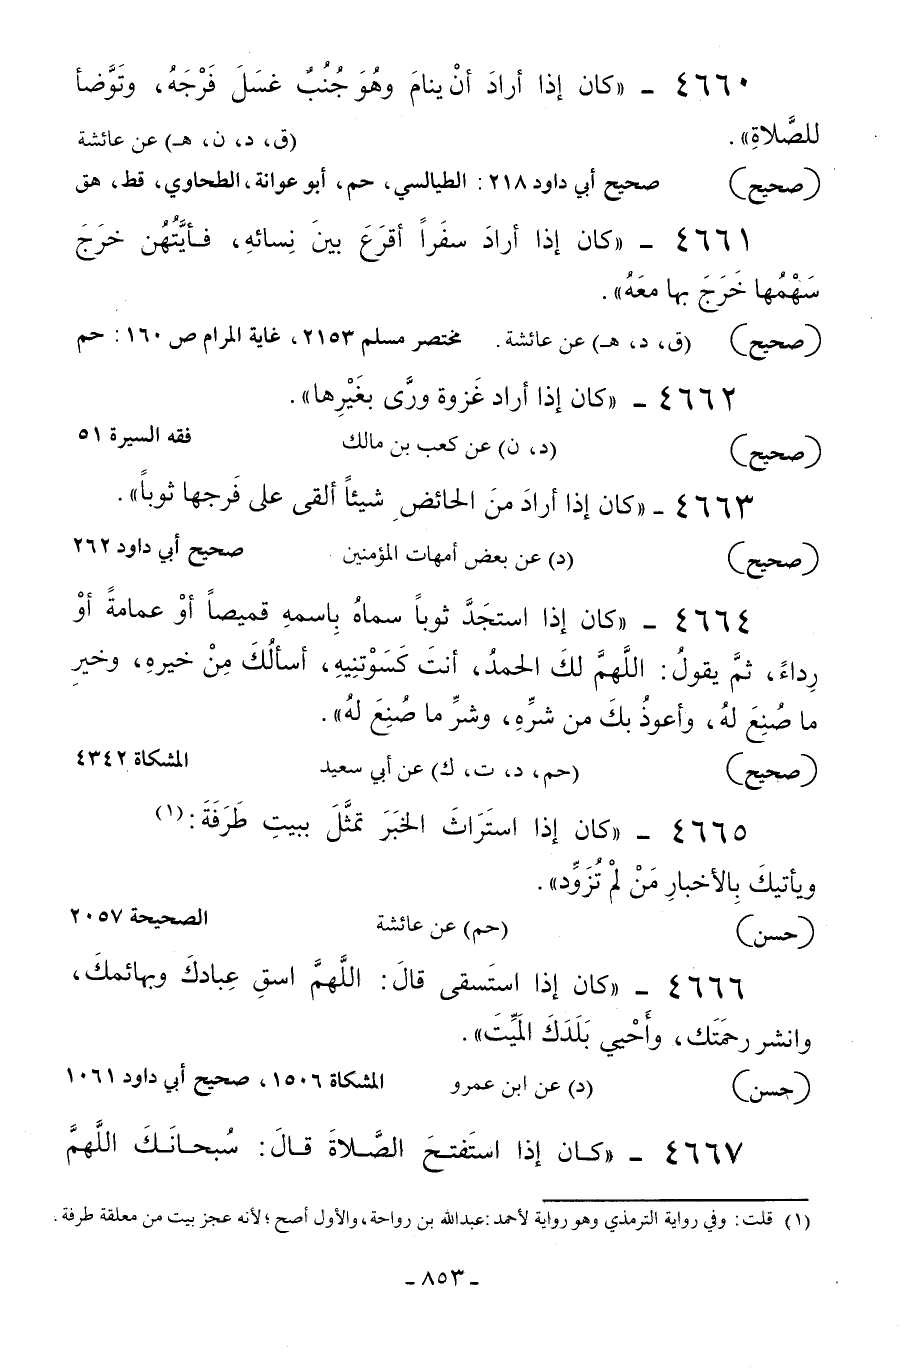 ٤٦٦٠ ـ «كان إذا أرادَ أنْ ينامَ وهُوَ جُنُبٌ غسَلَ فَرْجَهُ، وتَوَّضأ
للصَّلاةِ».
(ق، د، ن، هـ) عن عائشة
(صحيح) صحيح أبي داود ٢١٨: الطيالسي، حم، أبو عوانة، الطحاوي، قط، هق
٤٦٦١ ـ «كان إذا أرادَ سفَراً أقرَعَ بينَ نِسائهِ، فـأيَّتُهُن خرَجَ
سَهْمُها خَرَجَ بها معَهُ».
(صحيح) (ق، د، هـ) عن عائشة. مختصر مسلم ٢١٥٣، غاية المرام ص ١٦٠: حم
٤٦٦٢ ـ «كان إذا أراد غَزوة ورَّى بغَيْرِها».
(صحيح) (د، ن) عن كعب بن مالك فقه السيرة ٥١
٤٦٦٣ ـ «كان إذا أرادَ منَ الحائضِ شيئاً ألقى على فَرجها ثوباً».
(صحيح) (د) عن بعض أمهات المؤمنين صحيح أبي داود ٢٦٢
٤٦٦٤ ـ «كان إذا استجَدَّ ثوباً سماهُ بِاسمهِ قميصاً أوْ عمامةً أوْ
رِداءً، ثمَّ يقولُ: اللَّهمَّ لكَ الحمدُ، أنتَ كَسَوْتنِيهِ، أسألُكَ مِنْ خيرهِ، وخيرِ
ما صُنِعَ لهُ، وأعوذُ بكَ من شرِّهِ، وشرِّ ما صُنِعَ لهُ».
(صحيح) (حم، د، ت، ك) عن أبي سعيد المشكاة ٤٣٤٢
٤٦٦٥ ـ «كان إذا استَرَاثَ الخبَرَ تمثَّلَ ببيتِ طَرَفَةَ:(١)
ويأتيكَ بِالأخبارِ مَنْ لمْ تُزَوِّد».
(حسن) (حم) عن عائشة الصحيحة ٢٠٥٧
٤٦٦٦ ـ «كان إذا استَسقى قالَ: اللَّهمَّ اسقِ عِبادكَ وبهائمكَ،
وانشر رحمَتَك، وأَحْيي بَلَدَكَ المَيِّتَ».
(حسن) (د) عن ابن عمرو المشكاة ١٥٠٦، صحيح أبي داود ١٠٦١
٤٦٦٧ ـ «كـان إذا استَفتـحَ الصَّـلاةَ قـالَ: سُبحـانَـكَ اللَّهمَّ
(١) قلت: وفي رواية الترمذي وهو رواية لأحمد: عبدالله بن رواحة، والأول أصح؛ لأنه عجز بيت من معلقة طرفة.
ـ ٨٥٣ ـ